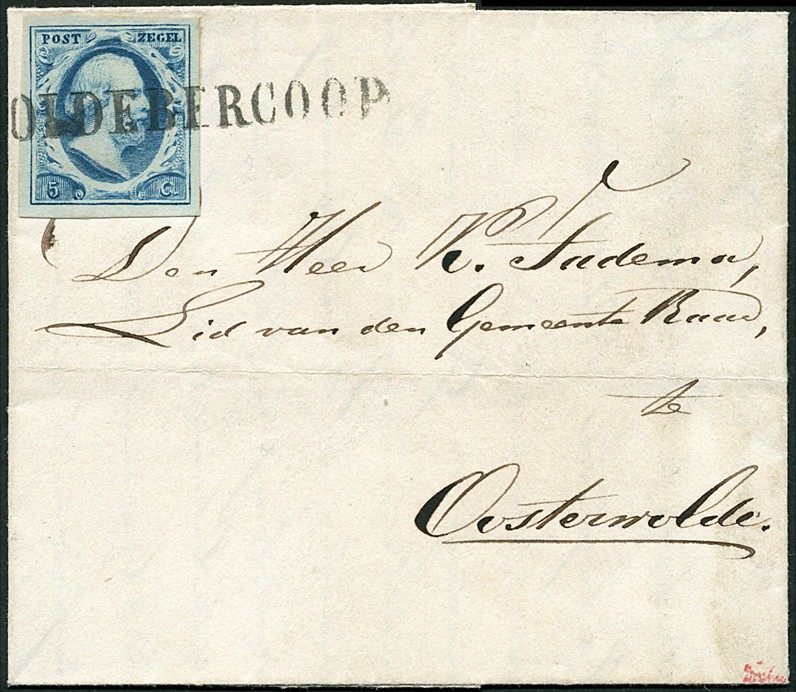 POST ZEGEL
OLDEBERCOOP
5 C.
Den Heer K. Tadema,
Lid van den Gemeente Raad,
te
Oosterwolde.